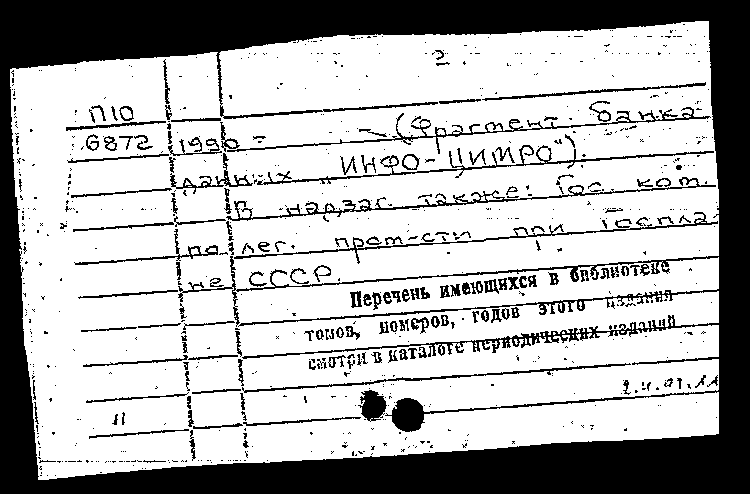 2
П10
6872 1990 - (Фрагмент банка
данных „ИНФО-ЦИМРО").
В надзаг. также: Гос. ком.
по лег. пром-сти при Госпла-
не СССР.
Перечень имеющихся в библиотеке
томов, номеров, годов этого издания
смотри в каталоге периодических изданий
11